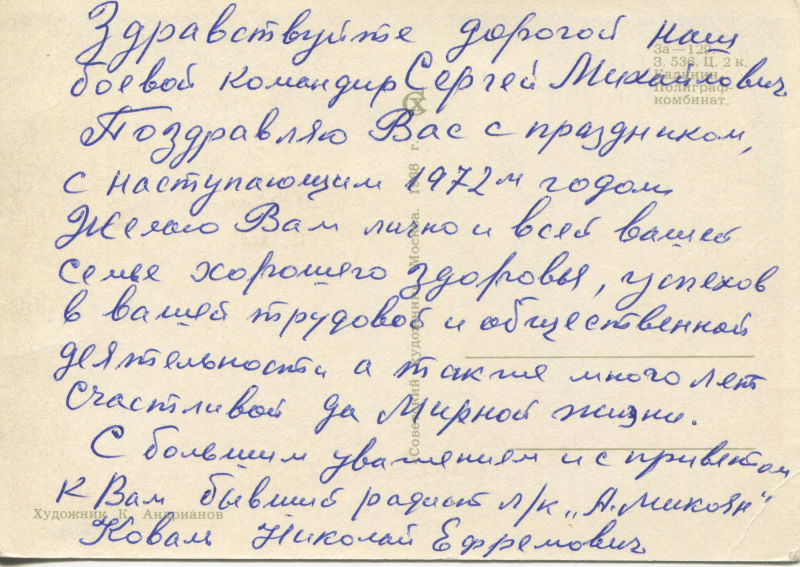 Здравствуйте дорогой наш
боевой командир Сергей Михайлович
Поздравляю Вас с праздником,
с наступающим 1972м годом
Желаю Вам лично и всей вашей
семье хорошего здоровья, успехов
в вашей трудовой и общественной
деятельности а также много лет
счастливой да Мирной жизни.
С большим уважением и с приветом
к Вам бывший радист л/к „А. Микоян"
Коваль Николай Ефремович
За—129.
З. 538. Ц. 2 к.
Калинин.
Полиграф-
комбинат.
Советский художник. Москва. 1968 г.
Художник К. Андрианов